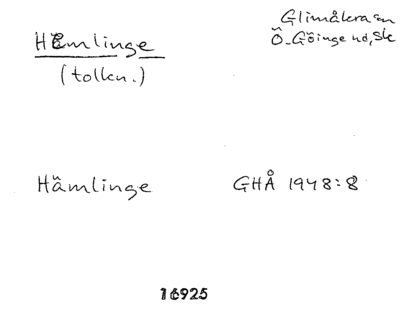 Hämlinge
(tolkn.)
Glimåkra sn
Ö. Göinge hd, Sk
Hämlinge GHÅ 1948:8
16925